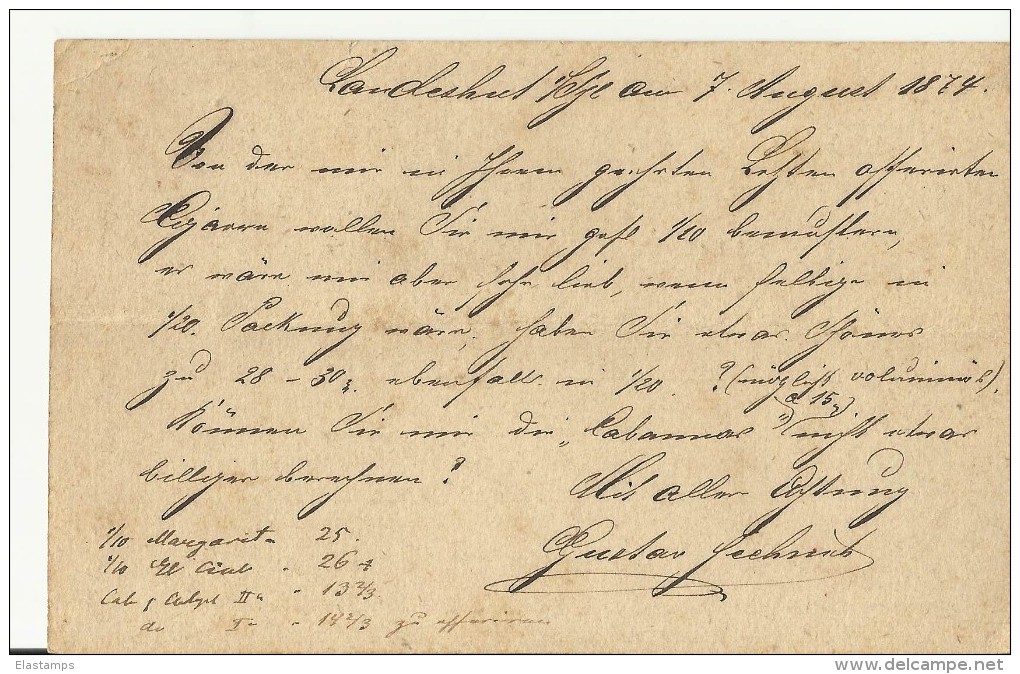 Landeshut /Schl am 7. August 1874.
Von der mir in Ihrem geehrten Letzten offerirten
Cigarre wollen Sie mir gefl 1/10 bemustern,
es wäre mir aber sehr lieb, wenn selbige in
1/20. Packung wäre, haben Sie etwas schönes
zu 28 - 30 ebenfalls in 1/20. ? (möglichst voluminös),
a 15
Können Sie mir die „Cabannas" nicht etwas
billiger berechnen?
Mit aller Achtung
Gustav
1/10 Margarit 25.
1/10 El 26
Cab II 13 2/3
do I 14 2/3 zu offeriren
Elastamps
www.delcampe.net